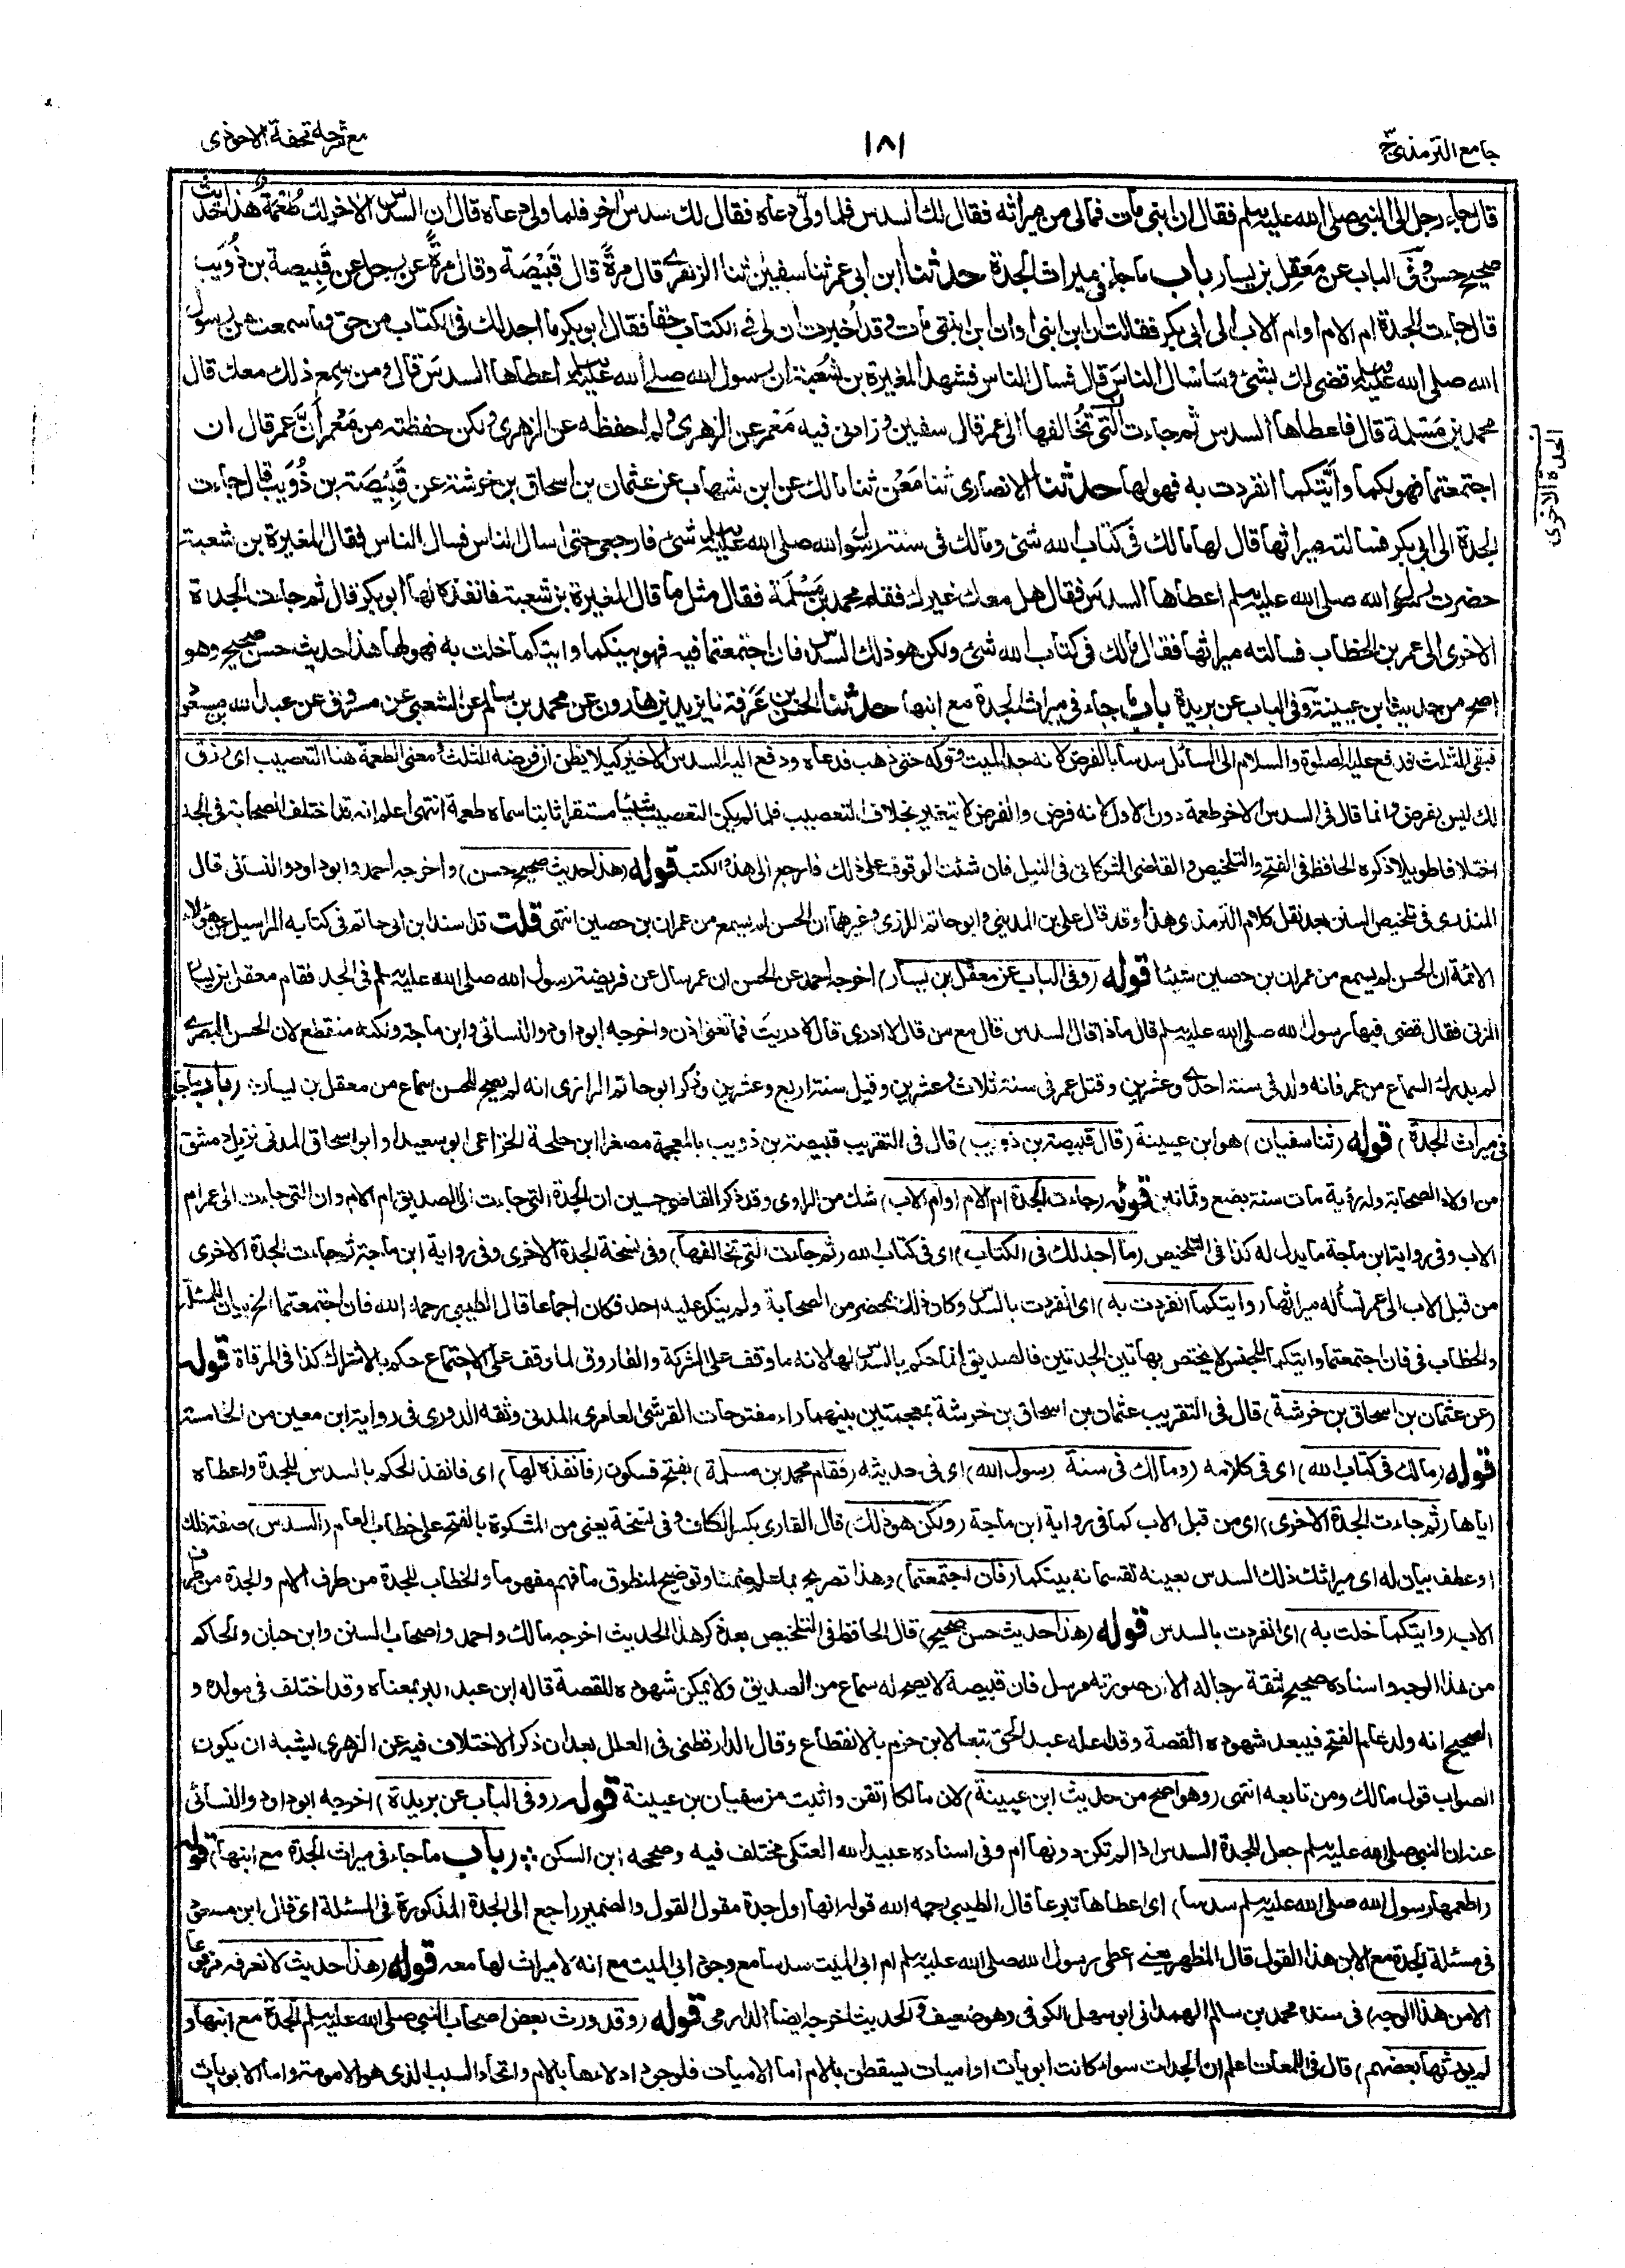 جامع الترمذي ج٣
١٨١
مع شرحه تحفة الاحوذى
قال جاء رجل الى النبي صلى الله عليه وسلم فقال ان ابنى مات فمالى من ميراثه فقال لك السدس فلما ولّى دعاه فقال لك سدس اخر فلما ولى دعاه قال ان السدس الاخر لك طُعْمَةٌ هذا حديث
صحيح حسن وفى الباب عن مَعْقِل بن يسار باب ما جاء فى ميراث الجدة حدثنا ابن ابى عمر ثنا سفيٰن ثنا الزهرى قال مرةً قال قَبِيْصَة وقال مرةً عن رجل عن قَبِيصة بن ذُوَيب
قال جاءت الجدة ام الام او ام الاب الى ابى بكر فقالت ان ابن ابنى او ان ابن ابنتى مات وقد اُخبرت ان لى فى الكتاب حقا فقال ابو بكر ما اجد لك فى الكتاب من حق وما سمعت من رسول
الله صلى الله عليه وسلم قضى لك بشئ وسَاَسْال الناسَ قال فسال الناس فشهد المغيرة بن شُعبة ان رسول الله صلى الله عليه وسلم اعطاها السدسَ قال ومن سمع ذلك معك قال
محمد بن مَسْلمة قال فاعطاها السدس ثم جاءت التى تُخَالفها الى عمر قال سفيٰن وزادنى فيه مَعْمَر عن الزهرى ولم احفظه عن الزهرى ولكن حفظته من مَعْمر اَنَّ عمر قال ان
اجتمعتما فهو لكما وأيّتكما انفردت به فهو لها حدثنا الانصارى ثنا مَعْن ثنا مالك عن ابن شهاب عن عثمان بن اسحاق بن خرشة عن قَبِيْصَة بن ذُوَيب قال جاءت
الجدة الى ابى بكر فسالته ميراثها قال لها مالك فى كتاب الله شئ ومالك فى سنة رسول الله صلى الله عليه وسلم شئ فارجعى حتى اسال الناس فسال الناس فقال المغيرة بن شعبة
حضرت رسول الله صلى الله عليه وسلم اعطاها السدسَ فقال هل معك غيرك فقام محمد بن مَسْلَمة فقال مثل ما قال المغيرة بن شعبة فانفذه لها ابو بكر قال ثم جاءت الجدة
الاخرى الى عمر بن الخطاب فسالته ميراثها فقال مالك فى كتاب الله شئ ولكن هو ذلك السدس فان اجتمعتما فيه فهو بينكما وايتكما خلت به فهو لها هذا حديث حسن صحيح وهو
اصح من حديث ابن عيينة وفى الباب عن بريدة باب ما جاء فى ميراث الجدة مع ابنها حدثنا الحسن بن عَرَفة نا يزيد بن هارون عن محمد بن سالم عن الشعبى عن مسروق عن عبد الله بن مسعود
الجدة الاخرى
فبقى الثلث فدفع عليه الصلوة والسلام الى السائل سدسا بالفرض لانه جد الميت وتركه حتى ذهب فدعاه ودفع اليه السدس الاخير كيلا يظن ان فرضه الثلث ومعنى الطعمة هنا التعصيب اى رزق
لك ليس بفرض وانما قال فى السدس الاخر طعمة دون الاول لانه فرض والفرض لا يتغير بخلاف التعصيب فلما لم يكن التعصيب شيئا مستقرا ثابتا سماه طعمة انتهى اعلم انه قد اختلف الصحابة فى الجد
اختلافا طويلا ذكره الحافظ فى الفتح والتلخيص والقاضى الشوكانى فى النيل فان شئت الوقوف على ذلك فارجع الى هذه الكتب قوله (هذا حديث صحيح حسن) واخرجه احمد وابو داود والنسائى قال
المنذرى فى تلخيص السنن بعد نقل كلام الترمذى هذا وقد قال على بن المدينى وابو حاتم الرازى وغيرهما ان الحسن لم يسمع من عمران بن حصين انتهى قلت قد اسند ابن ابى حاتم فى كتابه المراسيل عن هؤلاء
الائمة ان الحسن لم يسمع من عمران بن حصين شيئا قوله (وفى الباب عن معقل بن يسار) اخرجه احمد عن الحسن ان عمر سال عن فريضة رسول الله صلى الله عليه وسلم فى الجد فقام معقل بن يسار
المزنى فقال قضى فيها رسول الله صلى الله عليه وسلم قال ماذا قال السدس قال مع من قال لا ادرى قال لا دريت فما تغنى اذن واخرجه ابو داود والنسائى وابن ماجة ولكنه منقطع لان الحسن البصرى
لم يدرك السماع من عمر فانه ولد فى سنة احدى وعشرين وقتل عمر فى سنة ثلاث وعشرين وقيل سنة اربع وعشرين وذكر ابو حاتم الرازى انه لم يصح للحسن سماع من معقل بن يسار: (باب ما جاء
فى ميراث الجدة) قوله (ثنا سفيان) هو ابن عيينة (قال قبيصة بن ذويب) قال فى التقريب قبيصة بن ذويب بالمعجمة مصغرا ابن حلحة الخزاعى ابو سعيد او ابو اسحاق المدنى نزيل دمشق
من اولاد الصحابة وله رؤية مات سنة بضع وثمانين قوله (جاءت الجدة ام الام او ام الاب) شك من الراوى وقد ذكر القاضى حسين ان الجدة التى جاءت الى الصديق ام الام وان التى جاءت الى عمر ام
الاب وفى رواية ابن ماجة ما يدل له كذا فى التلخيص (ما اجد لك فى الكتاب) اى فى كتاب الله (ثم جاءت التى تخالفها) وفى نسخة الجدة الاخرى وفى رواية ابن ماجة ثم جاءت الجدة الاخرى
من قبل الاب الى عمر تسأله ميراثها (وايتكما انفردت به) اى انفردت بالسدس وكان ذلك بمحضر من الصحابة ولم ينكر عليه احد فكان اجماعا قال الطيبى رحمه الله فان اجتمعتما الخ بيان للمسئلة
والخطاب فى فان اجتمعتما وايتكما للجنس لا يختص بهاتين الجدتين فالصديق انما حكم بالسدس لها لانه ما وقف على الشركة والفاروق لما وقف على الاجتماع حكم بالاشتراك كذا فى المرقاة قوله
(عن عثمان بن اسحاق بن خرشة) قال فى التقريب عثمان بن اسحاق بن خرشة بمعجمتين بينهما راء مفتوحات القرشى العامرى المدنى وثقه الدورى فى رواية ابن معين من الخامسة
قوله (مالك فى كتاب الله) اى فى كلامه (ومالك فى سنة رسول الله) اى فى حديثه (فقام محمد بن مسلمة) بفتح فسكون (فانفذه لها) اى فانفذ الحكم بالسدس للجدة واعطاه
اياها (ثم جاءت الجدة الاخرى) اى من قبل الاب كما فى رواية ابن ماجة (ولكن هو ذلك) قال القارى بكسر الكاف وفى نسخة يعنى من المشكوة بالفتح على خطاب العام (السدس) صفة ذلك
او عطف بيان له اى ميراثك ذلك السدس بعينه تقسمانه بينكما (فان اجتمعتما) وهذا تصريح بما علم ضمنا وتوضيح لمنطوق ما فهم مفهوما والخطاب للجدة من طرف الام والجدة من طرف
الاب (وايتكما خلت به) اى انفردت بالسدس قوله (هذا حديث حسن صحيح) قال الحافظ فى التلخيص بعد ذكر هذا الحديث اخرجه مالك واحمد واصحاب السنن وابن حبان والحاكم
من هذا الوجه واسناده صحيح لثقة رجاله الا ان صورته مرسل فان قبيصة لا يصح له سماع من الصديق ولا يمكن شهوده للقصة قاله ابن عبد البر بمعناه وقد اختلف فى مولده و
الصحيح انه ولد عام الفتح فيبعد شهوده القصة وقد اعله عبد الحق تبعا لابن حزم بالانقطاع وقال الدارقطنى فى العلل بعد ان ذكر الاختلاف فيه عن الزهرى يشبه ان يكون
الصواب قول مالك ومن تابعه انتهى (وهو اصح من حديث ابن عيينة) لان مالكا اتقن واثبت من سفيان بن عيينة قوله (وفى الباب عن بريدة) اخرجه ابو داود والنسائى
عنه ان النبى صلى الله عليه وسلم جعل للجدة السدس اذا لم تكن دونها ام وفى اسناده عبيد الله العتكى مختلف فيه وصححه ابن السكن: (باب ما جاء فى ميراث الجدة مع ابنها) قوله
(اطعمها رسول الله صلى الله عليه وسلم سدسا) اى اعطاها تبرعا قال الطيبى رحمه الله قوله انها اول جدة مقول القول والضمير راجع الى الجدة المذكورة فى المسئلة اى قال ابن مسعود
فى مسئلة الجدة مع الابن هذا القول قال المظهر يعنى اعطى رسول الله صلى الله عليه وسلم ام ابى الميت سدسا مع وجود ابى الميت مع انه لا ميراث لها معه قوله (هذا حديث لا نعرفه مرفوعا
الا من هذا الوجه) فى سنده محمد بن سالم الهمدانى ابو سهل الكوفى وهو ضعيف والحديث اخرجه ايضا الدارمى قوله (وقد ورث بعض اصحاب النبى صلى الله عليه وسلم الجدة مع ابنها و
لم يورثها بعضهم) قال فى اللمعات اعلم ان الجدات سواء كانت ابويات او اميات يسقطن بالام اما الاميات فلوجود ادلاءها بالام واتحاد السبب الذى هو الامومة واما الابويات